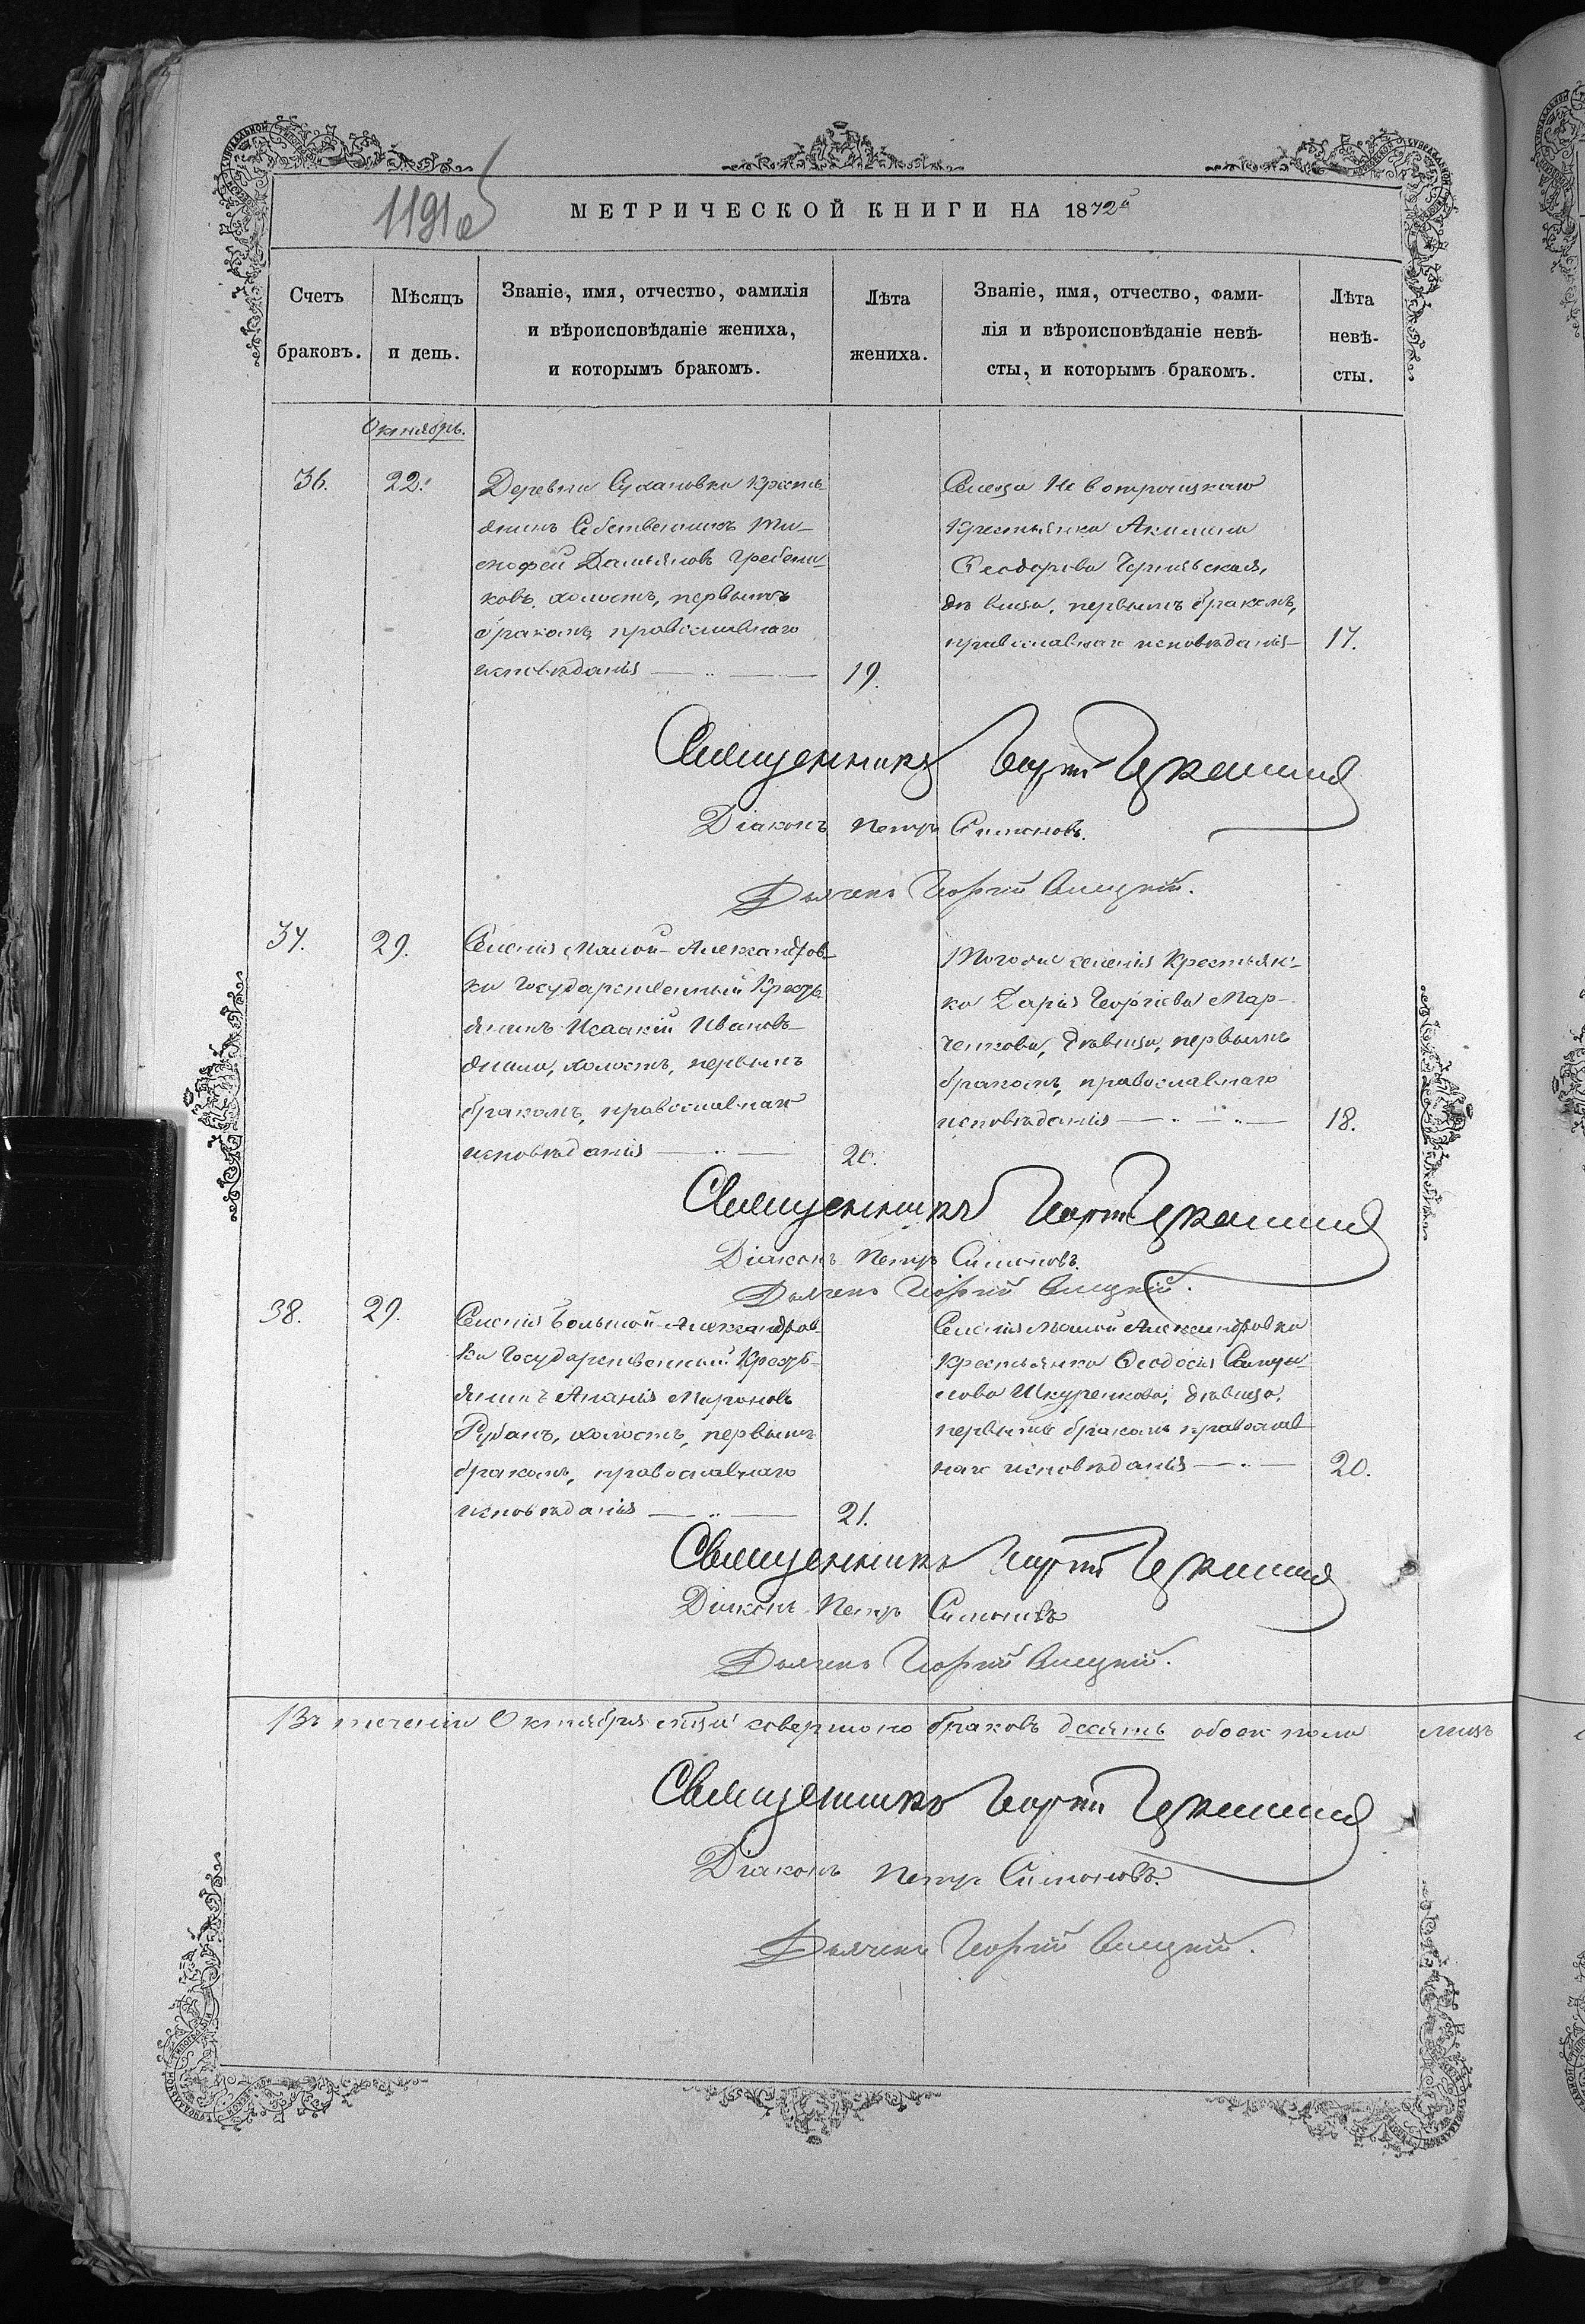 1191 об
МЕТРИЧЕСКОЙ КНИГИ НА 1872й
Счетъ браковъ.
Мѣсяцъ и день.
Званіе, имя, отчество, фамилія
и вѣроисповѣданіе жениха,
и которымъ бракомъ.
Лѣта
жениха.
Званіе, имя, отчество, фами-
лія и вѣроисповѣданіе невѣ-
сты, и которымъ бракомъ.
Лѣта
невѣ-
сты.
Октябрь.
36.
22.
Деревни Сухановки Кресть-
янинъ Собственникъ Ти-
мофей Дамьяновъ Гребени-
ковъ, холостъ, первымъ
бракомъ, православнаго
исповѣданія
19.
Селенія Новотроицкаго
Крестьянка Акилина
Феодорова
дѣвица, первымъ бракомъ,
православнаго исповѣданія
17.
Священникъ Георгій
Діаконъ Петръ Симоновъ.
Дьячекъ Георгій
37.
29.
Селенія Малой-Александров-
ки Государственный Кресть-
янинъ Исаакій Ивановъ
холостъ, первымъ
бракомъ, православнаго
исповѣданія
20.
Тогоже селенія Крестьян-
ка Дарія Георгіева Мар-
ченкова, дѣвица, первымъ
бракомъ, православнаго
исповѣданія
18.
Священникъ Георгій
Діаконъ Петръ Симоновъ.
Дьячекъ Георгій
38.
29.
Селенія Большой-Александров-
ки Государственный Кресть-
янинъ Ананія Мироновъ
Рубанъ, холостъ, первымъ
бракомъ, православнаго
исповѣданія
21.
Селенія Малой Александровки
Крестьянка Феодосія Самуи-
лова Шкуренкова, дѣвица,
первымъ бракомъ православ-
наго исповѣданія
20.
Священникъ Георгій
Діаконъ Петръ Симоновъ
Дьячекъ Георгій
Въ теченіи Октября м̃ца совершено браковъ десять обоего пола лицъ
Священникъ Георгій
Діаконъ Петръ Симоновъ.
Дьячекъ Георгій